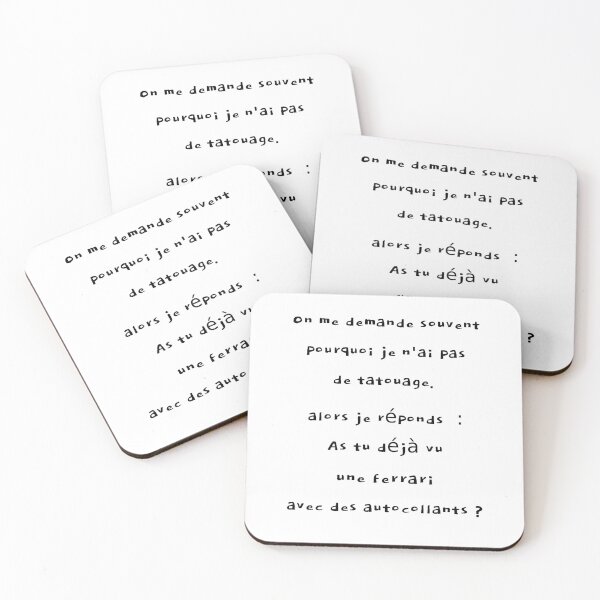 On me demande souvent
pourquoi je n'ai pas
de tatouage.
vu
On me demande souvent
pourquoi je n'ai pas
de tatouage.
alors je réponds :
As tu déjà vu
?
On me demande souvent
pourquoi je n'ai pas
de tatouage.
alors je réponds :
As tu déjà vu
une ferrari
avec des
On me demande souvent
pourquoi je n'ai pas
de tatouage.
alors je réponds :
As tu déjà vu
une ferrari
avec des autocollants ?